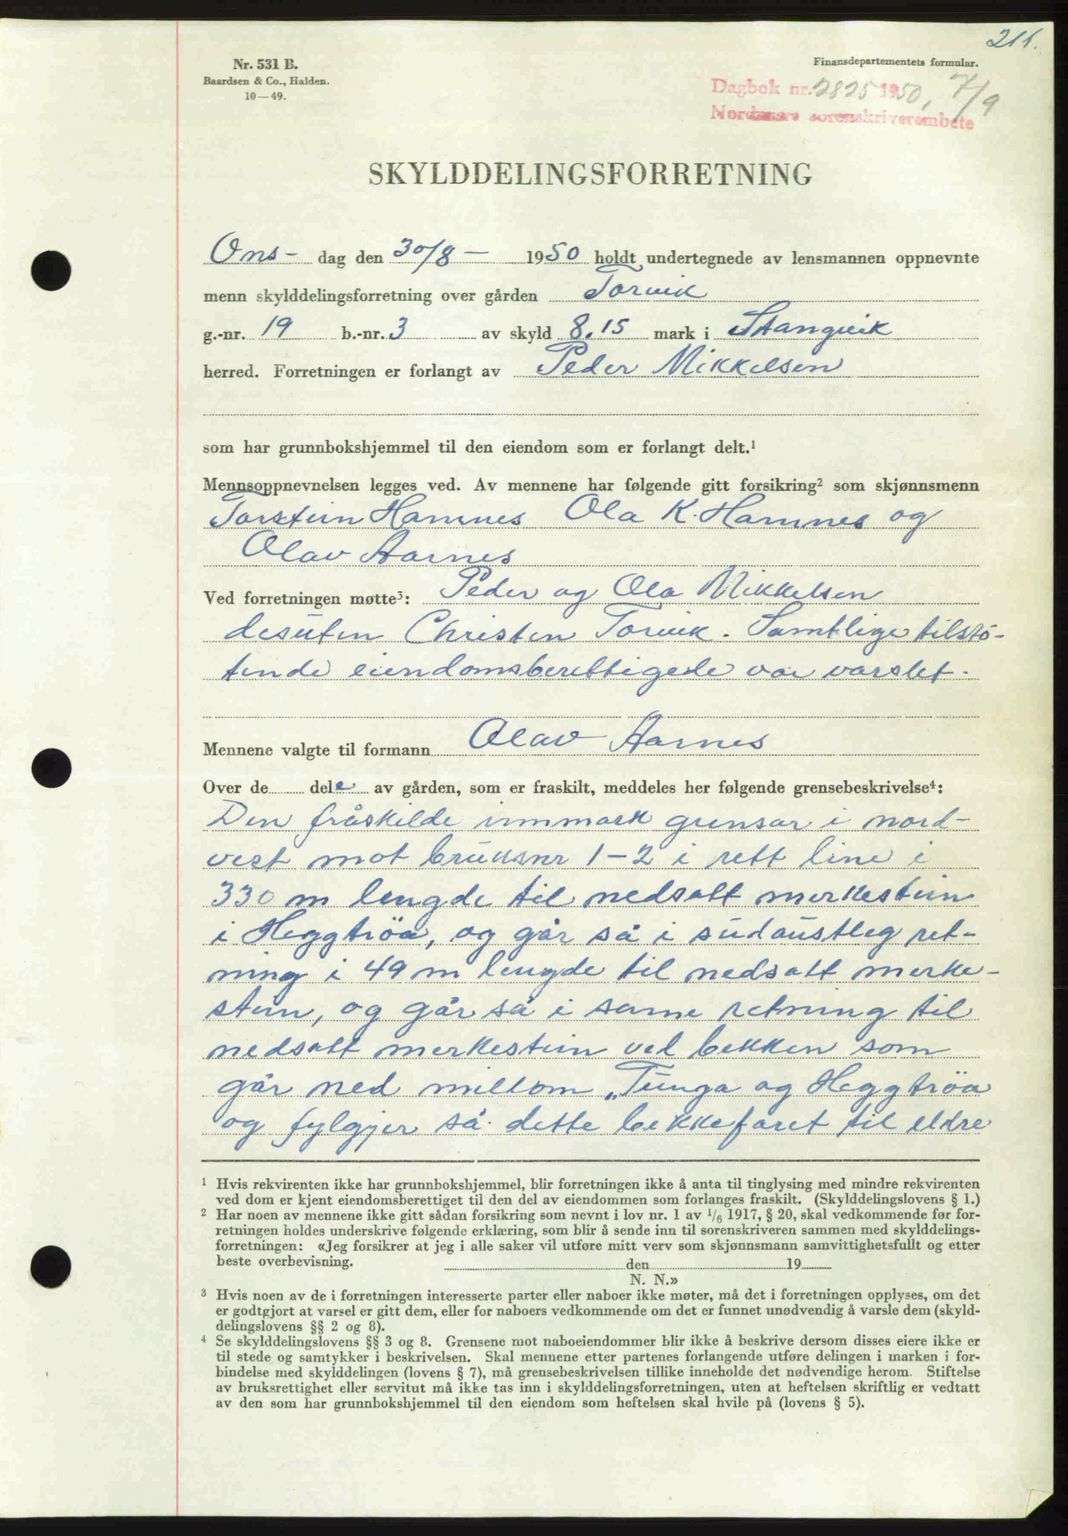 211.
Nr. 531 B.
Baardsen & Co., Halden.
10—49.
Finansdepartementets formular.
Dagbok nr. 2825 1950, 7/9
Nordmøre sorenskriverembete
SKYLDDELINGSFORRETNING
Ons- dag den 30/8 — 1950 holdt undertegnede av lensmannen oppnevnte
menn skylddelingsforretning over gården Torvik
g.-nr. 19 b.-nr. 3 av skyld 8.15 mark i Stangvik
herred. Forretningen er forlangt av Peder Mikkelsen
som har grunnbokshjemmel til den eiendom som er forlangt delt.¹
Mennsoppnevnelsen legges ved. Av mennene har følgende gitt forsikring² som skjønnsmenn
Torstein Hamnes Ola K. Hamnes og
Olav Aarnes
Ved forretningen møtte³: Peder og Ola Mikkelsen
desuten Christen Torvik. Samtlige tilstø-
tende eiendomsberettigede var varslet.
Mennene valgte til formann Olav Aarnes
Over de dele av gården, som er fraskilt, meddeles her følgende grensebeskrivelse⁴:
Den fråskilde innmark grensar i nord-
vest mot bruksnr 1-2 i rett line i
330 m lengde til nedsatt merkestein
i Heggtrøa, og går så i südaustleg ret-
ning i 49 m lengde til nedsatt merke-
stein, og går så i same retning til
nedsatt merkestein ved bekken som
går ned millom „Tunga og Heggtrøa
og fylgjer så dette bekkefaret til eldre
¹ Hvis rekvirenten ikke har grunnbokshjemmel, blir forretningen ikke å anta til tinglysing med mindre rekvirenten
ved dom er kjent eiendomsberettiget til den del av eiendommen som forlanges fraskilt. (Skylddelingslovens § 1.)
² Har noen av mennene ikke gitt sådan forsikring som nevnt i lov nr. 1 av 1/6 1917, § 20, skal vedkommende før for-
retningen holdes underskrive følgende erklæring, som blir å sende inn til sorenskriveren sammen med skylddelings-
forretningen: «Jeg forsikrer at jeg i alle saker vil utføre mitt verv som skjønnsmann samvittighetsfullt og etter
beste overbevisning. den 19
N. N.»
³ Hvis noen av de i forretningen interesserte parter eller naboer ikke møter, må det i forretningen opplyses, om det
er godtgjort at varsel er gitt dem, eller for naboers vedkommende om det er funnet unødvendig å varsle dem (skyld-
delingslovens §§ 2 og 8).
⁴ Se skylddelingslovens §§ 3 og 8. Grensene mot naboeiendommer blir ikke å beskrive dersom disses eiere ikke er
til stede og samtykker i beskrivelsen. Skal mennene etter partenes forlangende utføre delingen i marken i for-
bindelse med skylddelingen (lovens § 7), må grensebeskrivelsen tillike inneholde det nødvendige herom. Stiftelse
av bruksrettighet eller servitut må ikke tas inn i skylddelingsforretningen, uten at heftelsen skriftlig er vedtatt
av den som har grunnbokshjemmel til den eiendom som heftelsen skal hvile på (lovens § 5).